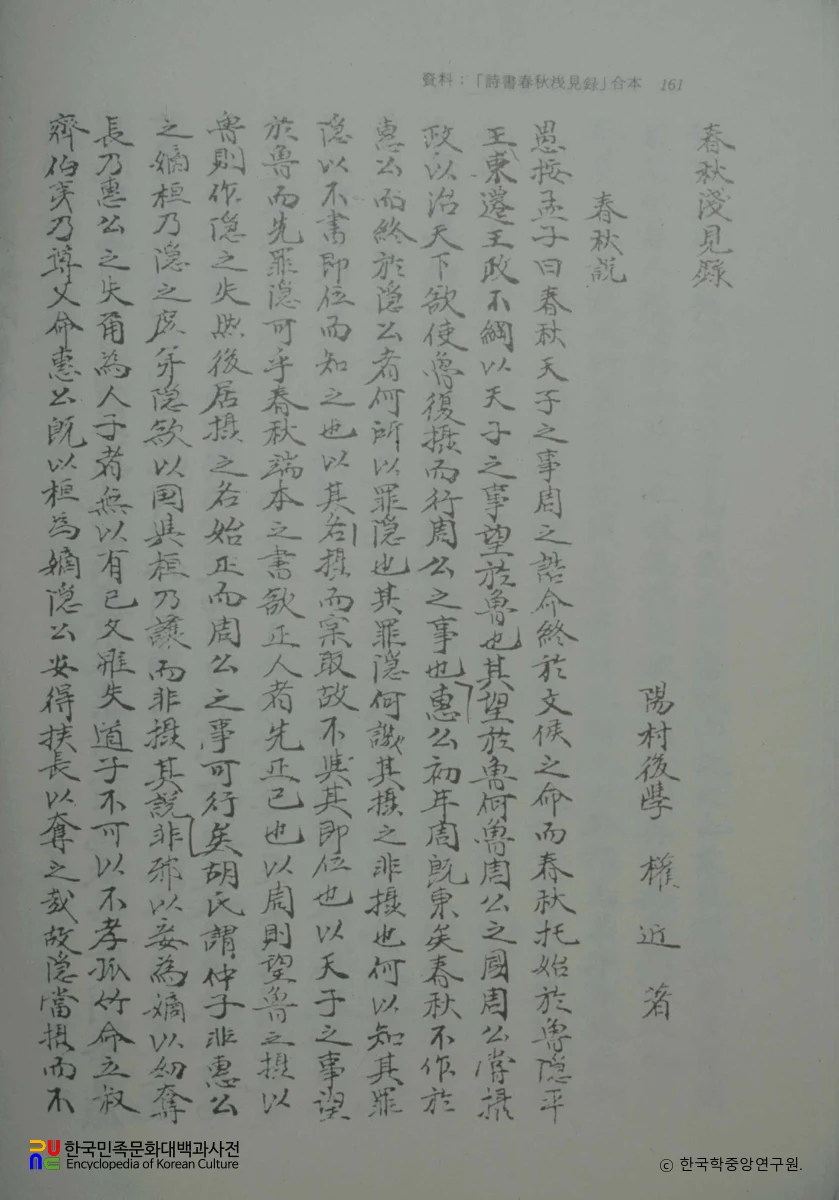 資料：「詩書春秋浅見録」合本 161
春秋淺見錄
陽村後學 權近 著
春秋說
愚按孟子曰春秋天子之事周之誥命終於文侯之命而春秋托始於魯隱平
王東遷王政不綱以天子之事望於魯也其望於魯何魯周公之國周公嘗攝
政以治天下欲使魯復攝而行周公之事也惠公初年周既東矣春秋不作於
惠公而終於隱公者何所以罪隱也其罪隱何譏其攝之非攝也何以知其罪
隱以不書即位而知之也以其名攝而寀取故不與其即位也以天子之事望
於魯而先罪隱可乎春秋端本之書欲正人者先正己也以周則望魯之攝以
魯則作隱之失然後居攝之名始正而周公之事可行矣胡氏謂仲子非惠公
之嫡桓乃隱之庶弟隱欲以國與桓乃讓而非攝其說非邪以妾為嫡以幼奪
長乃惠公之失爾為人子者無以有己父雖失道子不可以不孝孤竹命立叔
齊伯夷乃尊父命惠公既以桓為嫡隱公安得挾長以奪之哉故隱當攝而不
한국민족문화대백과사전
Encyclopedia of Korean Culture
© 한국학중앙연구원.